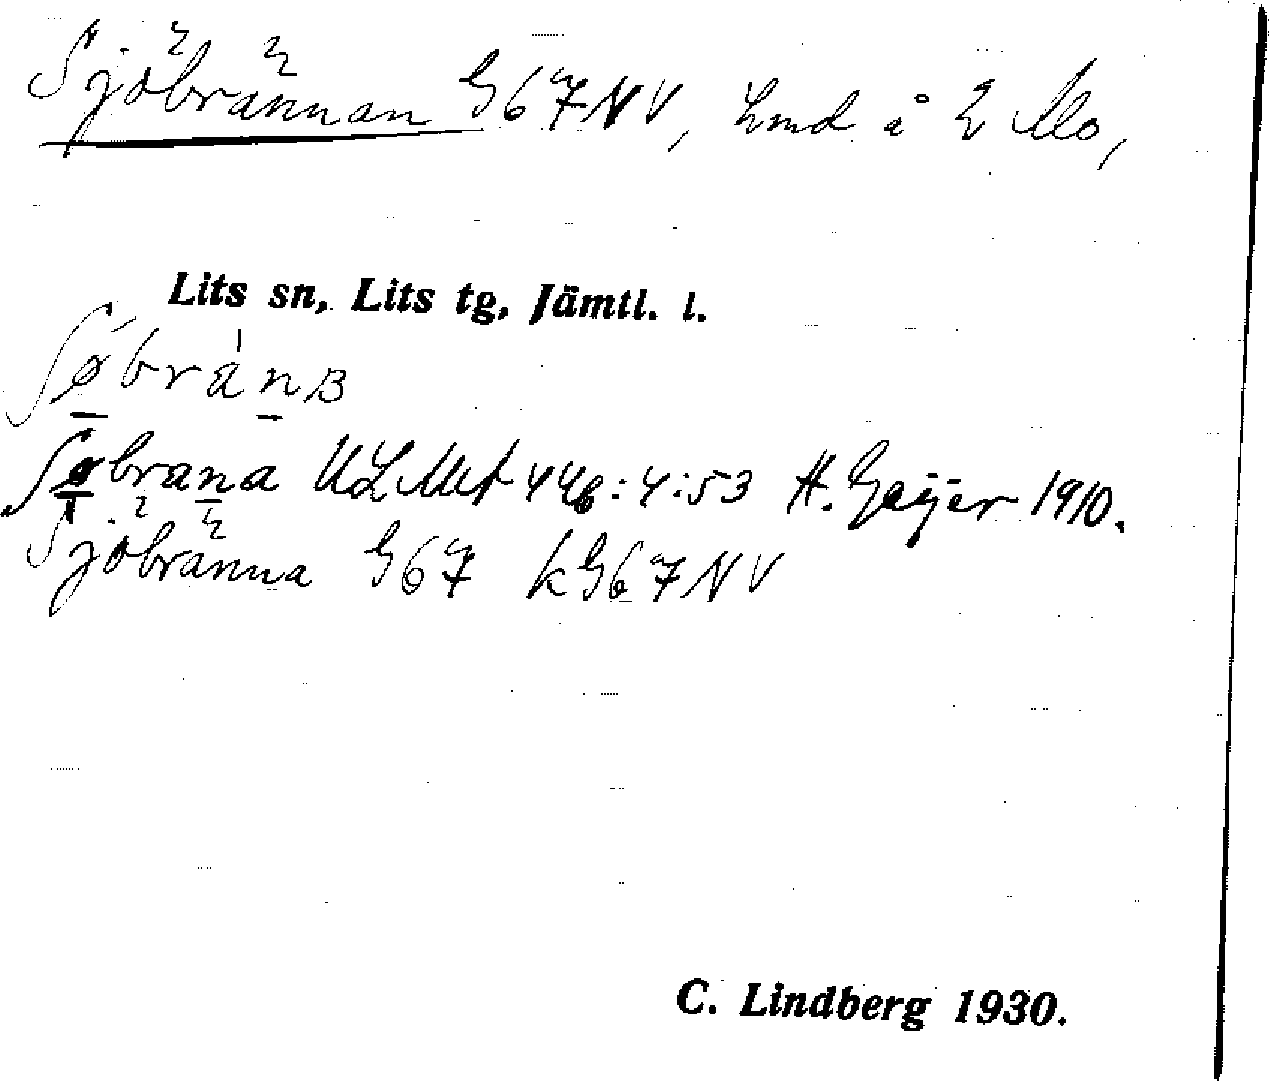 Sjöbrännan G67NV, Lmd å 2 Mo,
Lits sn, Lits tg, Jämtl. l.
ʃøbrànɐ
ʃøbrana ULMA 446:4:53 H. Geijer 1910.
Sjöbränna G67 kG67NV
C. Lindberg 1930.